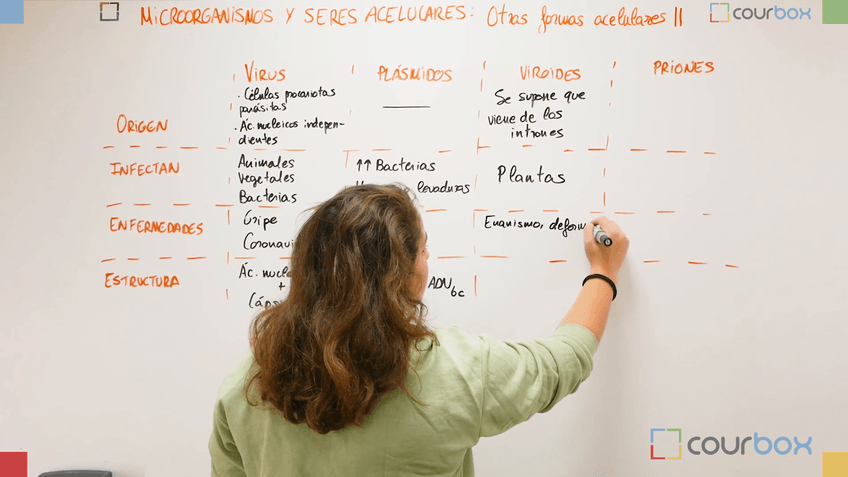 MICROORGANISMOS Y SERES ACELULARES: Otras formas acelulares II
courbox
VIRUS
PLÁSMIDOS
VIROIDES
PRIONES
ORIGEN
· Células procariotas
parásitas
· Ác. nucleicos indepen-
dientes
Se supone que
viene de los
intrones
INFECTAN
Animales
Vegetales
Bacterias
↑↑ Bacterias
levaduras
Plantas
ENFERMEDADES
Gripe
Enanismo, deform
ESTRUCTURA
Ác.
+
ADN bc
courbox